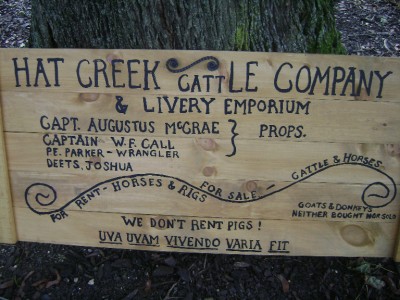 HAT CREEK CATTLE COMPANY
& LIVERY EMPORIUM
CAPT. AUGUSTUS McCRAE } PROPS.
CAPTAIN W.F. CALL
P.E. PARKER - WRANGLER
DEETS, JOSHUA
FOR RENT - HORSES & RIGS FOR SALE - CATTLE & HORSES
GOATS & DONKEYS
NEITHER BOUGHT NOR SOLD
WE DON'T RENT PIGS!
UVA UVAM VIVENDO VARIA FIT